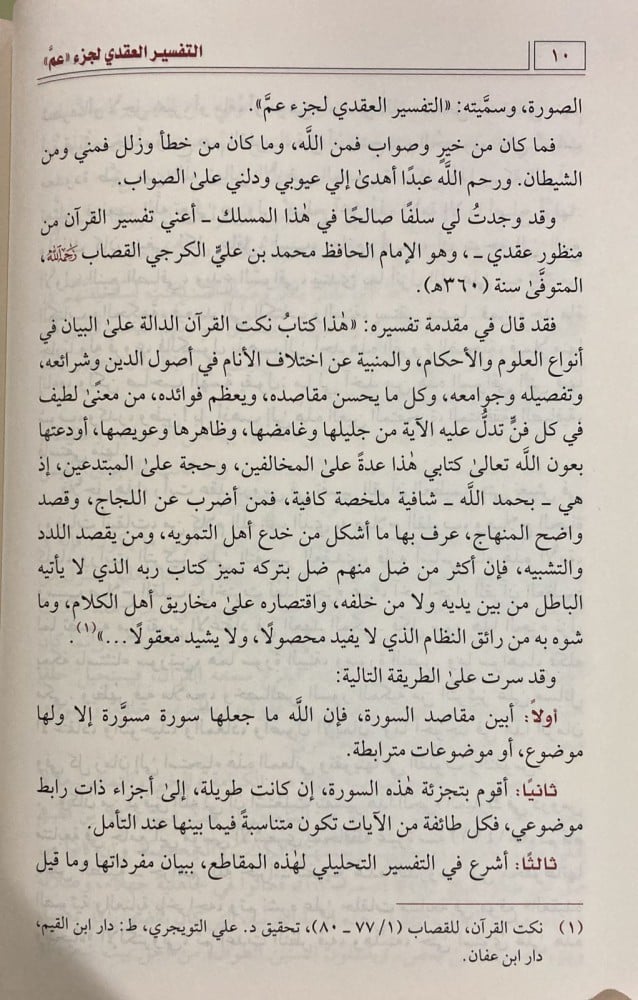 ١٠
التفسير العقدي لجزء «عمَّ»
الصورة، وسمَّيته: «التفسير العقدي لجزء عمَّ».
فما كان من خيرٍ وصواب فمن اللَّه، وما كان من خطأ وزلل فمني ومن
الشيطان. ورحم اللَّه عبدًا أهدىٰ إلي عيوبي ودلني علىٰ الصواب.
وقد وجدتُ لي سلفًا صالحًا في هٰذا المسلك ـ أعني تفسير القرآن من
منظور عقدي ـ، وهو الإمام الحافظ محمد بن عليٍّ الكرجي القصاب رَحِمَهُ اللَّهُ،
المتوفَّىٰ سنة (٣٦٠هـ).
فقد قال في مقدمة تفسيره: «هٰذا كتابُ نكت القرآن الدالة علىٰ البيان في
أنواع العلوم والأحكام، والمنبية عن اختلاف الأنام في أصول الدين وشرائعه،
وتفصيله وجوامعه، وكل ما يحسن مقاصده، ويعظم فوائده، من معنًىٰ لطيف
في كل فنٍّ تدلُّ عليه الآية من جليلها وغامضها، وظاهرها وعويصها، أودعتها
بعون اللَّه تعالىٰ كتابي هٰذا عدةً علىٰ المخالفين، وحجة علىٰ المبتدعين، إذ
هي ـ بحمد اللَّه ـ شافية ملخصة كافية، فمن أضرب عن اللجاج، وقصد
واضح المنهاج، عرف بها ما أشكل من خدع أهل التمويه، ومن يقصد اللدد
والتشبيه، فإن أكثر من ضل منهم ضل بتركه تميز كتاب ربه الذي لا يأتيه
الباطل من بين يديه ولا من خلفه، واقتصاره علىٰ مخاريق أهل الكلام، وما
شوه به من رائق النظام الذي لا يفيد محصولًا، ولا يشيد معقولًا...»(١).
وقد سرت علىٰ الطريقة التالية:
أولاً: أبين مقاصد السورة، فإن اللَّه ما جعلها سورة مسوَّرة إلا ولها
موضوع، أو موضوعات مترابطة.
ثانيًا: أقوم بتجزئة هٰذه السورة، إن كانت طويلة، إلىٰ أجزاء ذات رابط
موضوعي، فكل طائفة من الآيات تكون متناسبةً فيما بينها عند التأمل.
ثالثًا: أشرع في التفسير التحليلي لهٰذه المقاطع، ببيان مفرداتها وما قيل
(١) نكت القرآن، للقصاب (١/ ٧٧ ـ ٨٠)، تحقيق د. علي التويجري، ط: دار ابن القيم،
دار ابن عفان.